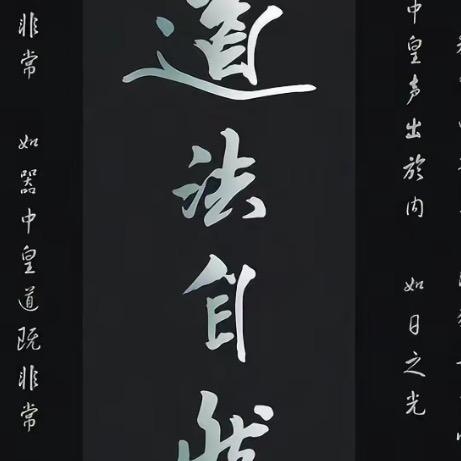 中皇声出於内 如日之光
道法自然
非常 如器中皇道既非常